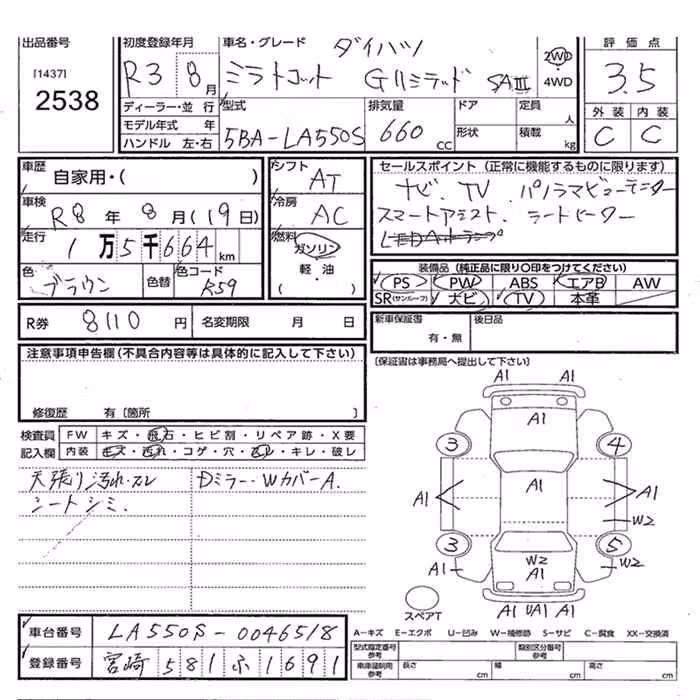 出品番号
[1437]
2538
初度登録年月
R3 8月
車名・グレード ダイハツ
ミラトコット Gリミテッド SAⅢ
2WD
・
4WD
評価点
3.5
外装 内装
C C
ディーラー・並行
モデル年式 年
ハンドル 左・右
型式
5BA-LA550S
排気量
660 CC
ドア
形状
定員 人
積載 kg
車歴
自家用・( )
車検
R8年 8月(19日)
走行
1万5千664km
色
ブラウン
色替
色コード
R59
シフト
AT
冷房
AC
燃料
ガソリン
・
軽・油
( )
セールスポイント (正常に機能するものに限ります)
ナビ. TV. パノラマビューモニター
スマートアシスト. シートヒーター
装備品 (純正品に限り○印をつけてください)
PS PW ABS エアB AW
SR(サンルーフ) ナビ TV 本革
R券 8110円
名変期限 月 日
新車保証書
有・無
後日品
(保証書は事務局へ提出して下さい)
注意事項申告欄(不具合内容等は具体的に記入して下さい)
修復歴 有〔箇所 〕
検査員 FW キズ・飛石・ヒビ割・リペア跡・X要
記入欄 内装 キズ・汚れ・コゲ・穴・スレ・キレ・破レ
天張り汚れ・スレ
シートシミ.
Dミラー・WカバーA.
A1 A1
A1
3 4
A1 A1 A1
W2
3 5
W2
A1
A1 W2
A1 UA1 A1
スペアT
車台番号 LA550S-0046518
登録番号 宮崎 581 ふ 1691
A-キズ E-エクボ U-凹み W-補修跡 S-サビ C-腐食 XX-交換済
型式指定番号 参考
類別区分番号 参考
車庫証明用 参考
長さ cm
幅 cm
高さ cm